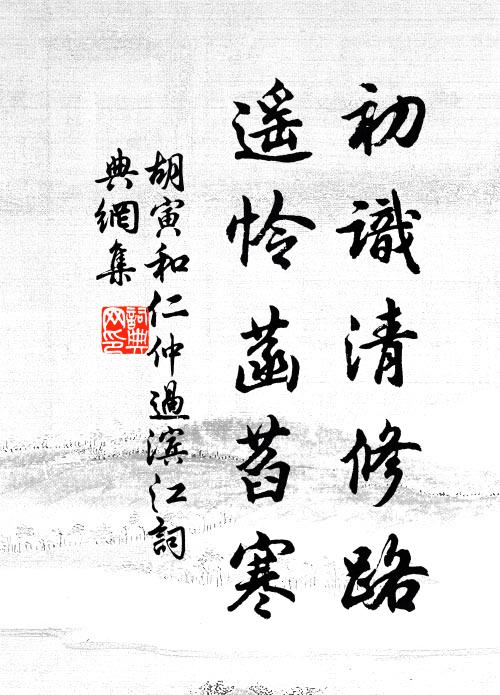 初識清修路
遥怜菡萏寒
胡寅和仁仲過滨江詞
典網集
詞典
网印